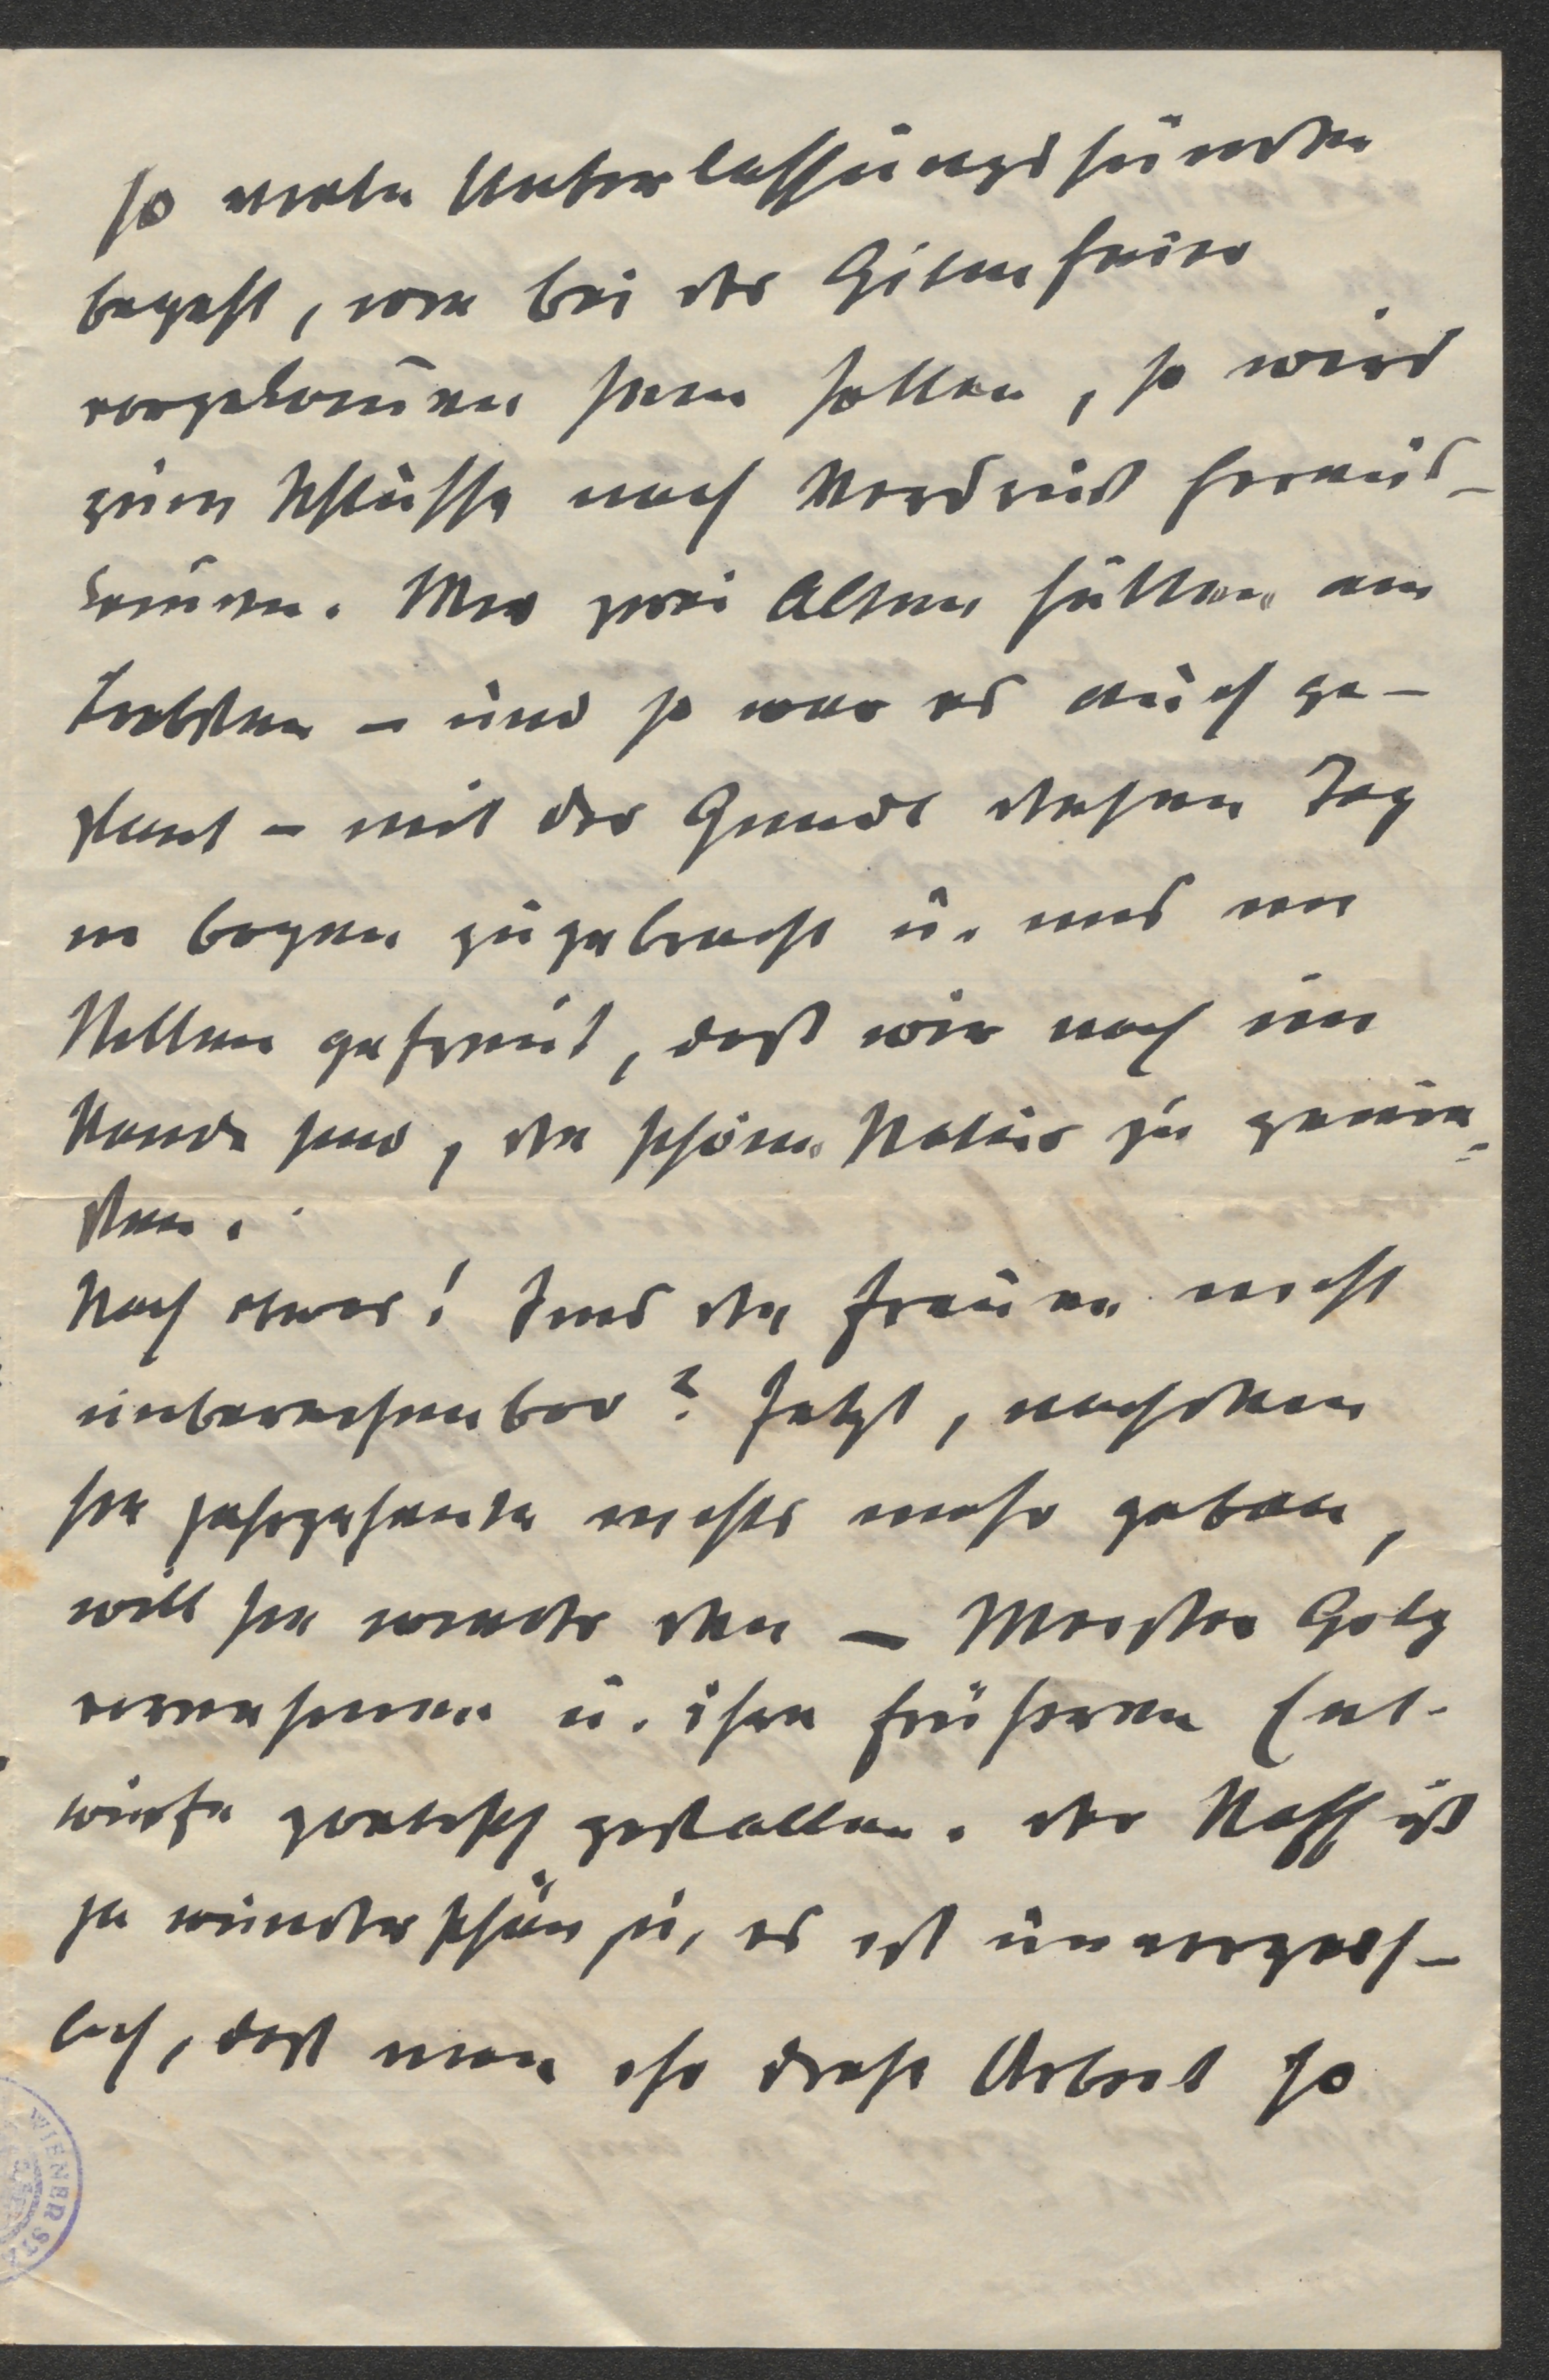 so viele Unterlassungssünden
begeht, wie bei der Gilmfeier
vorgekom̅en sein sollen, so wird
zum Schlusse noch Verdruß heraus-
kom̅en. Wir zwei Alten hätten am
liebsten – und so war es auch ge-
plant – mit der Gundl diesen Tag
in Bozen zugebracht u. uns im
Stillen gefreut, daß wir noch im
Stande sind, die schöne Natur zu genie-
ßen.
Noch etwas! Sind die Frauen nicht
unberechenbar? Jetzt, nachdem
sie jahrzehnte nichts mehr geben,
will sie wieder den – Meister Golz
vernehmen u. ihre früheren Ent-
würfe gestalten. Der Stoff ist
ja wunderschön u, es ist unverzeih-
lich, daß man ihr diese Arbeit so
WIENER STA